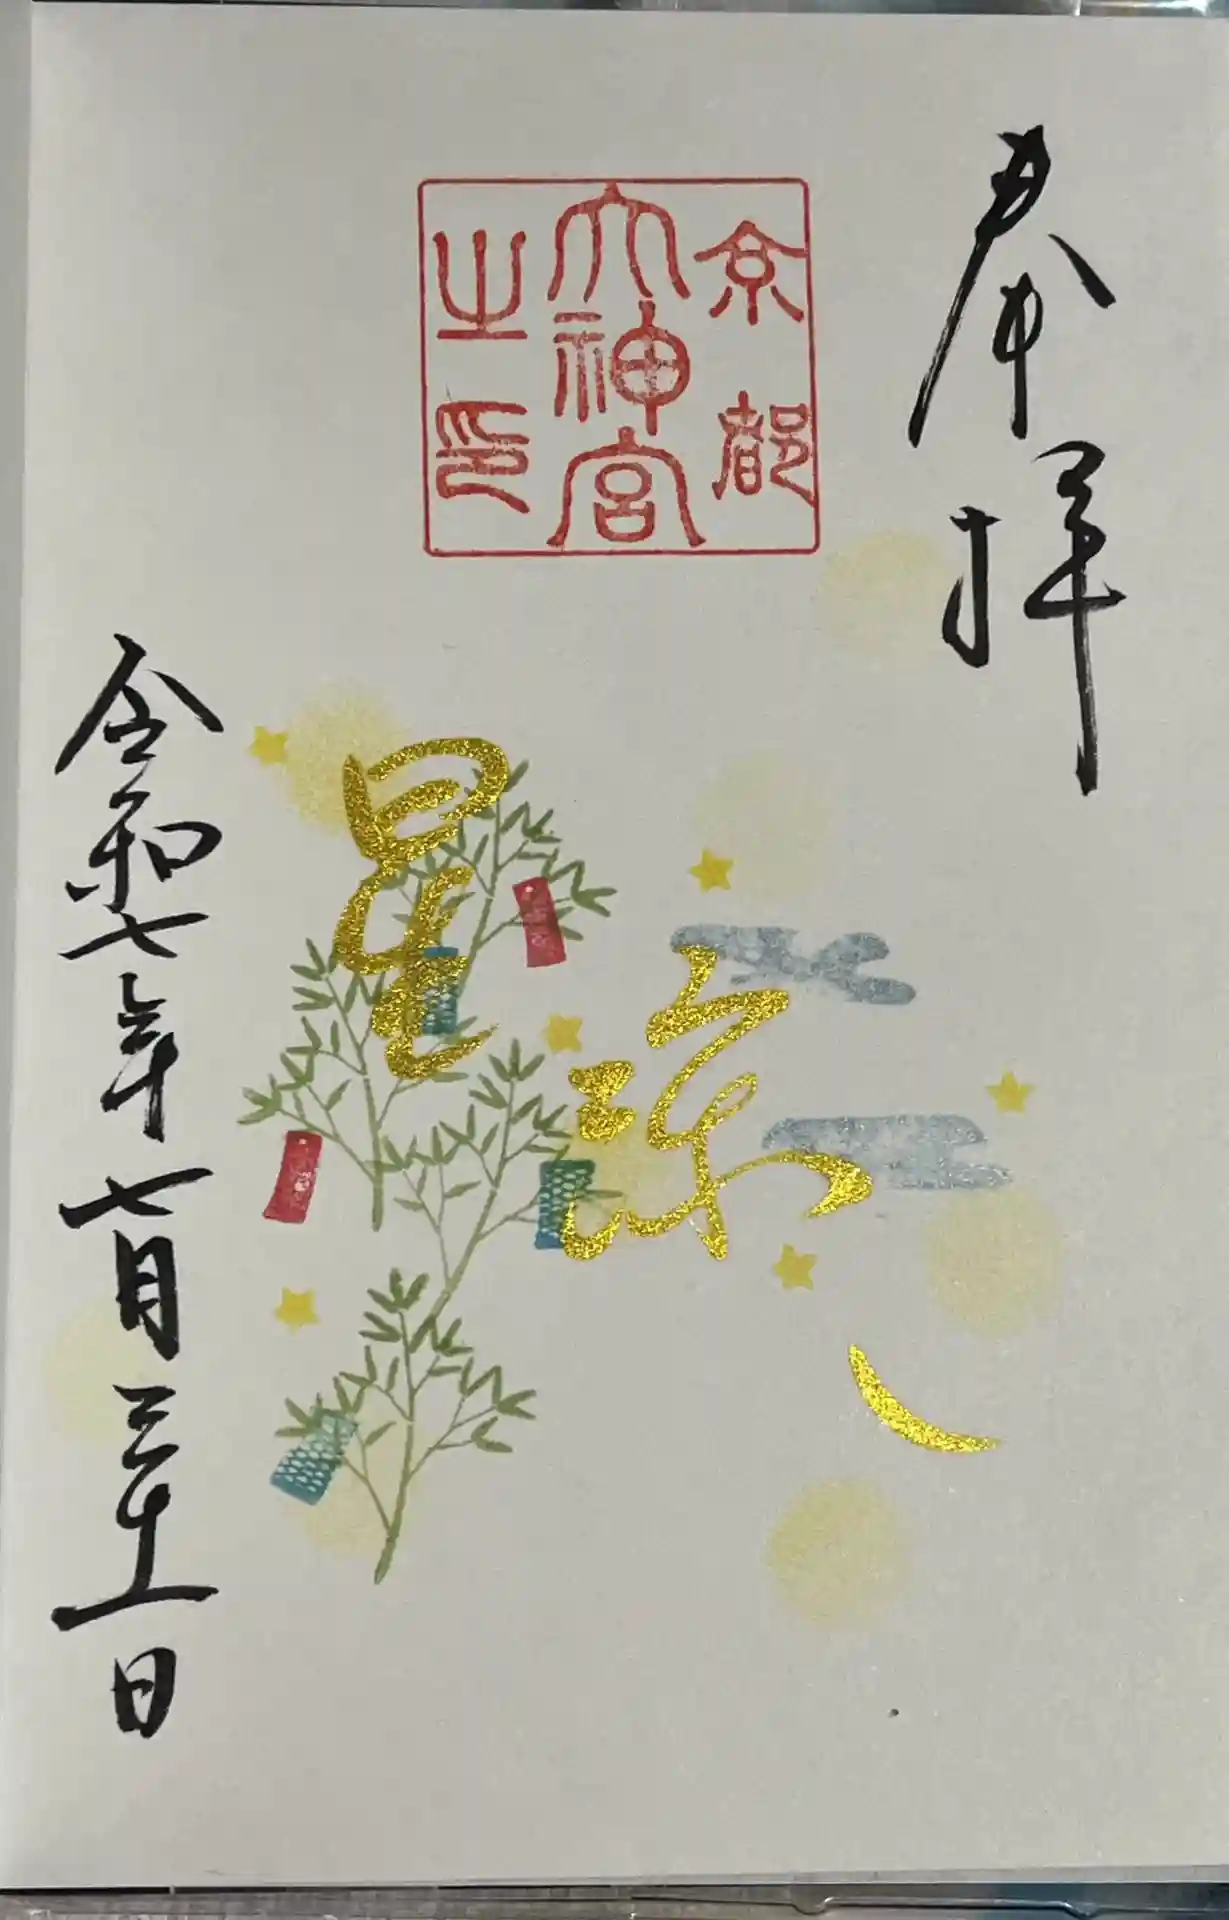 奉拝
京都
大神宮
之印
涼
星
令和七年七月三十一日